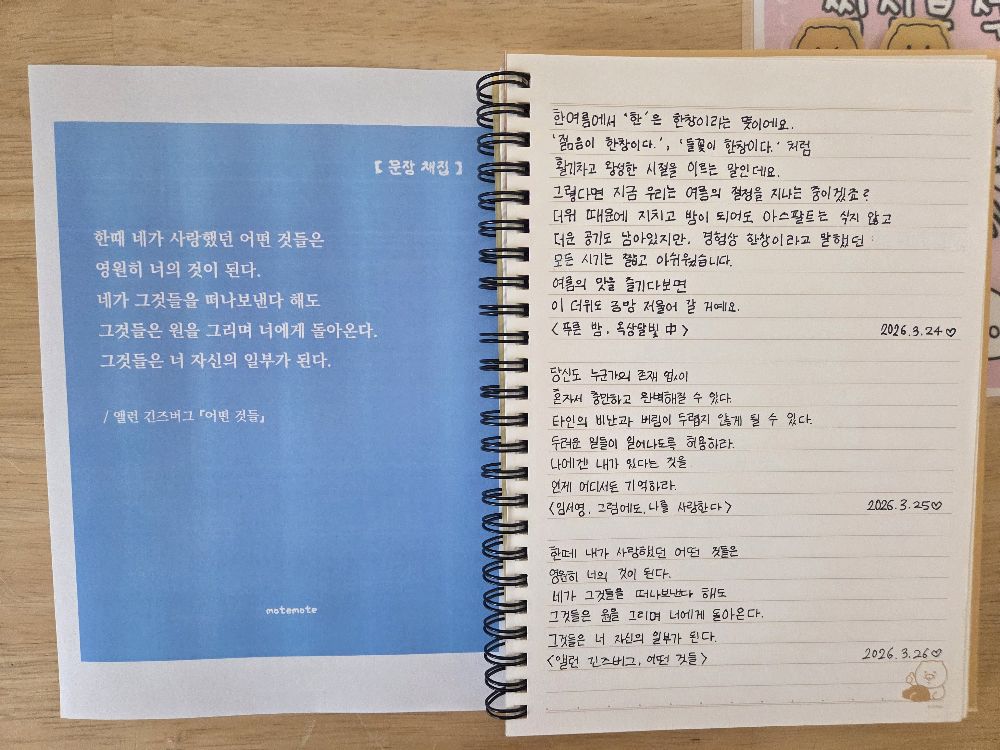 [ 문장 채집 ]
한때 네가 사랑했던 어떤 것들은
영원히 너의 것이 된다.
네가 그것들을 떠나보낸다 해도
그것들은 원을 그리며 너에게 돌아온다.
그것들은 너 자신의 일부가 된다.
/ 앨런 긴즈버그 『어떤 것들』
motemote
한여름에서 '한'은 한창이라는 뜻이에요.
'젊음이 한창이다.', '들꽃이 한창이다.' 처럼
활기차고 왕성한 시절을 이르는 말인데요.
그렇다면 지금 우리는 여름의 절정을 지나는 중이겠죠?
더위 때문에 지치고 밤이 되어도 아스팔트는 식지 않고
더운 공기도 남아있지만, 경험상 한창이라고 말했던
모든 시기는 짧고 아쉬웠습니다.
여름의 맛을 즐기다보면
이 더위도 금방 저물어 갈 거예요.
<푸른 밤, 옥상달빛 中> 2026.3.24♡
당신도 누군가의 존재 없이
혼자서 충만하고 완벽해질 수 있다.
타인의 비난과 버림이 두렵지 않게 될 수 있다.
두려운 일들이 일어나도록 허용하라.
나에겐 내가 있다는 것을
언제 어디서든 기억하라.
<임서영, 그럼에도, 나를 사랑한다> 2026.3.25♡
한때 내가 사랑했던 어떤 것들은
영원히 너의 것이 된다.
네가 그것들을 떠나보낸다 해도
그것들은 원을 그리며 너에게 돌아온다.
그것들은 너 자신의 일부가 된다.
<앨런 긴즈버그, 어떤 것들> 2026.3.26♡